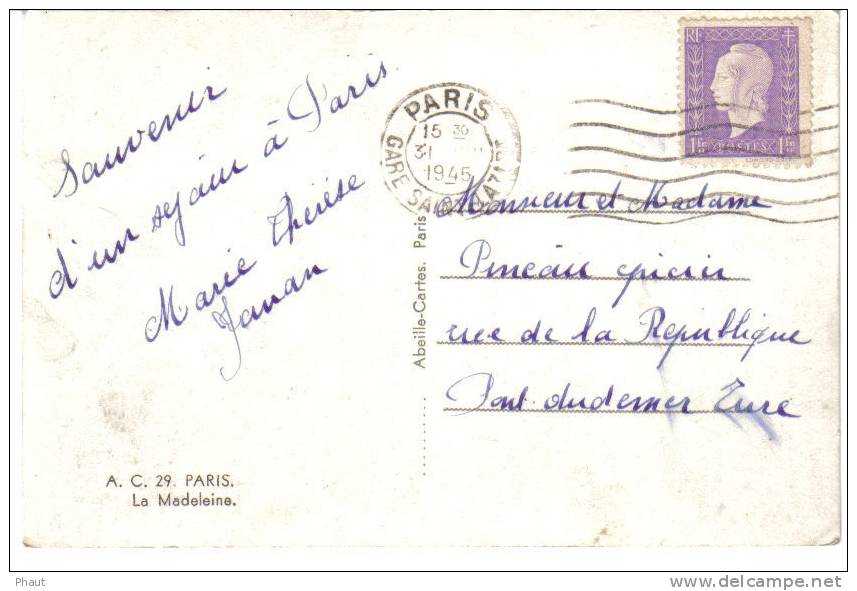 Souvenir
d'un séjour à Paris.
Marie Thérèse
Janan
A. C. 29. PARIS.
La Madeleine.
Abeille-Cartes. Paris
PARIS
15 30
31
1945
GARE SAINT LAZARE
RF
POSTES
Monsieur et Madame
Pineau épicier
rue de la République
Pont Audemer Eure
Phaut
www.delcampe.net